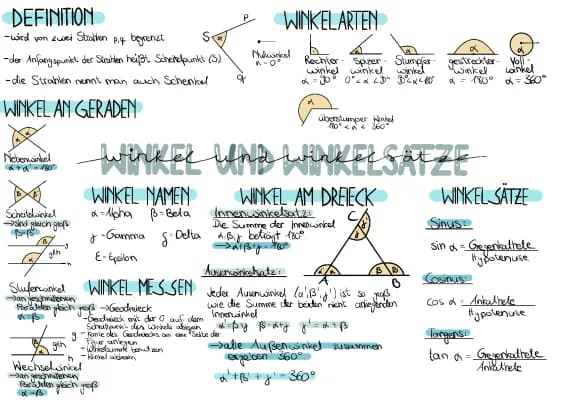 DEFINITION
-wird von zwei Strahlen p,q begrenzt
-der Anfangspunkt der Strahlen heißt Scheitelpunkt (S)
-die Strahlen nennt man auch Schenkel
S
α
p
q
WINKELARTEN
Nullwinkel
α = 0°
Rechter-
winkel
α = 90°
Spitzer-
winkel
0° < α < 90°
Stumpfer-
winkel
90° < α < 180°
gestreckter-
Winkel
α = 180°
Voll-
winkel
α = 360°
überstumpfer Winkel
180° < α < 360°
WINKEL AN GERADEN
Nebenwinkel
α + α' = 180°
Scheitelwinkel
→sind gleich groß
β = β'
Stufenwinkel
→an geschnittenen
Parallelen gleich groß
α = β
g
g||h
h
Wechselwinkel
→an geschnittenen
Parallelen gleich groß
α = β
winkel UND WINKELSÄTZE
WINKEL NAMEN
α = Alpha β = Beta
γ - Gamma δ = Delta
ε - Epsilon
WINKEL MESSEN
→Geodreieck
- Geodreieck mit der 0 auf dem
Scheitelpunkt des Winkels anlegen
- Kante des Geodreiecks an eine Seite der
Figur anlegen
- Winkelsumme benutzen
- Winkel ablesen
WINKEL AM DREIECK
Innenwinkelsatz:
Die Summe der Innenwinkel
α, β, γ beträgt 180°
→α+β+γ = 180°
C
A
B
Außenwinkelsatz:
Jeder Außenwinkel (α', β', γ') ist so groß
wie die Summe der beiden nicht anliegenden
Innenwinkel
α' = β+γ β' = α+γ γ' = α+β
→alle Außenwinkel zusammen
ergeben 360°
α' + β' + γ' = 360°
WINKELSÄTZE
Sinus:
sin α = Gegenkathete
Hypotenuse
Cosinus:
cos α = Ankathete
Hypotenuse
Tangens:
tan α = Gegenkathete
Ankathete